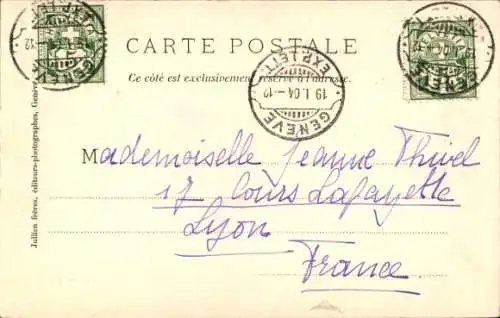 CARTE POSTALE
Ce côté est exclusivement réservé à l'adresse.
GENÈVE
EXP. LETT.
19 I.04-12
GENÈVE
Mademoiselle Jeanne Thivel
17 Cours Lafayette
Lyon
France
Jullien frères, éditeurs-photographes, Genève